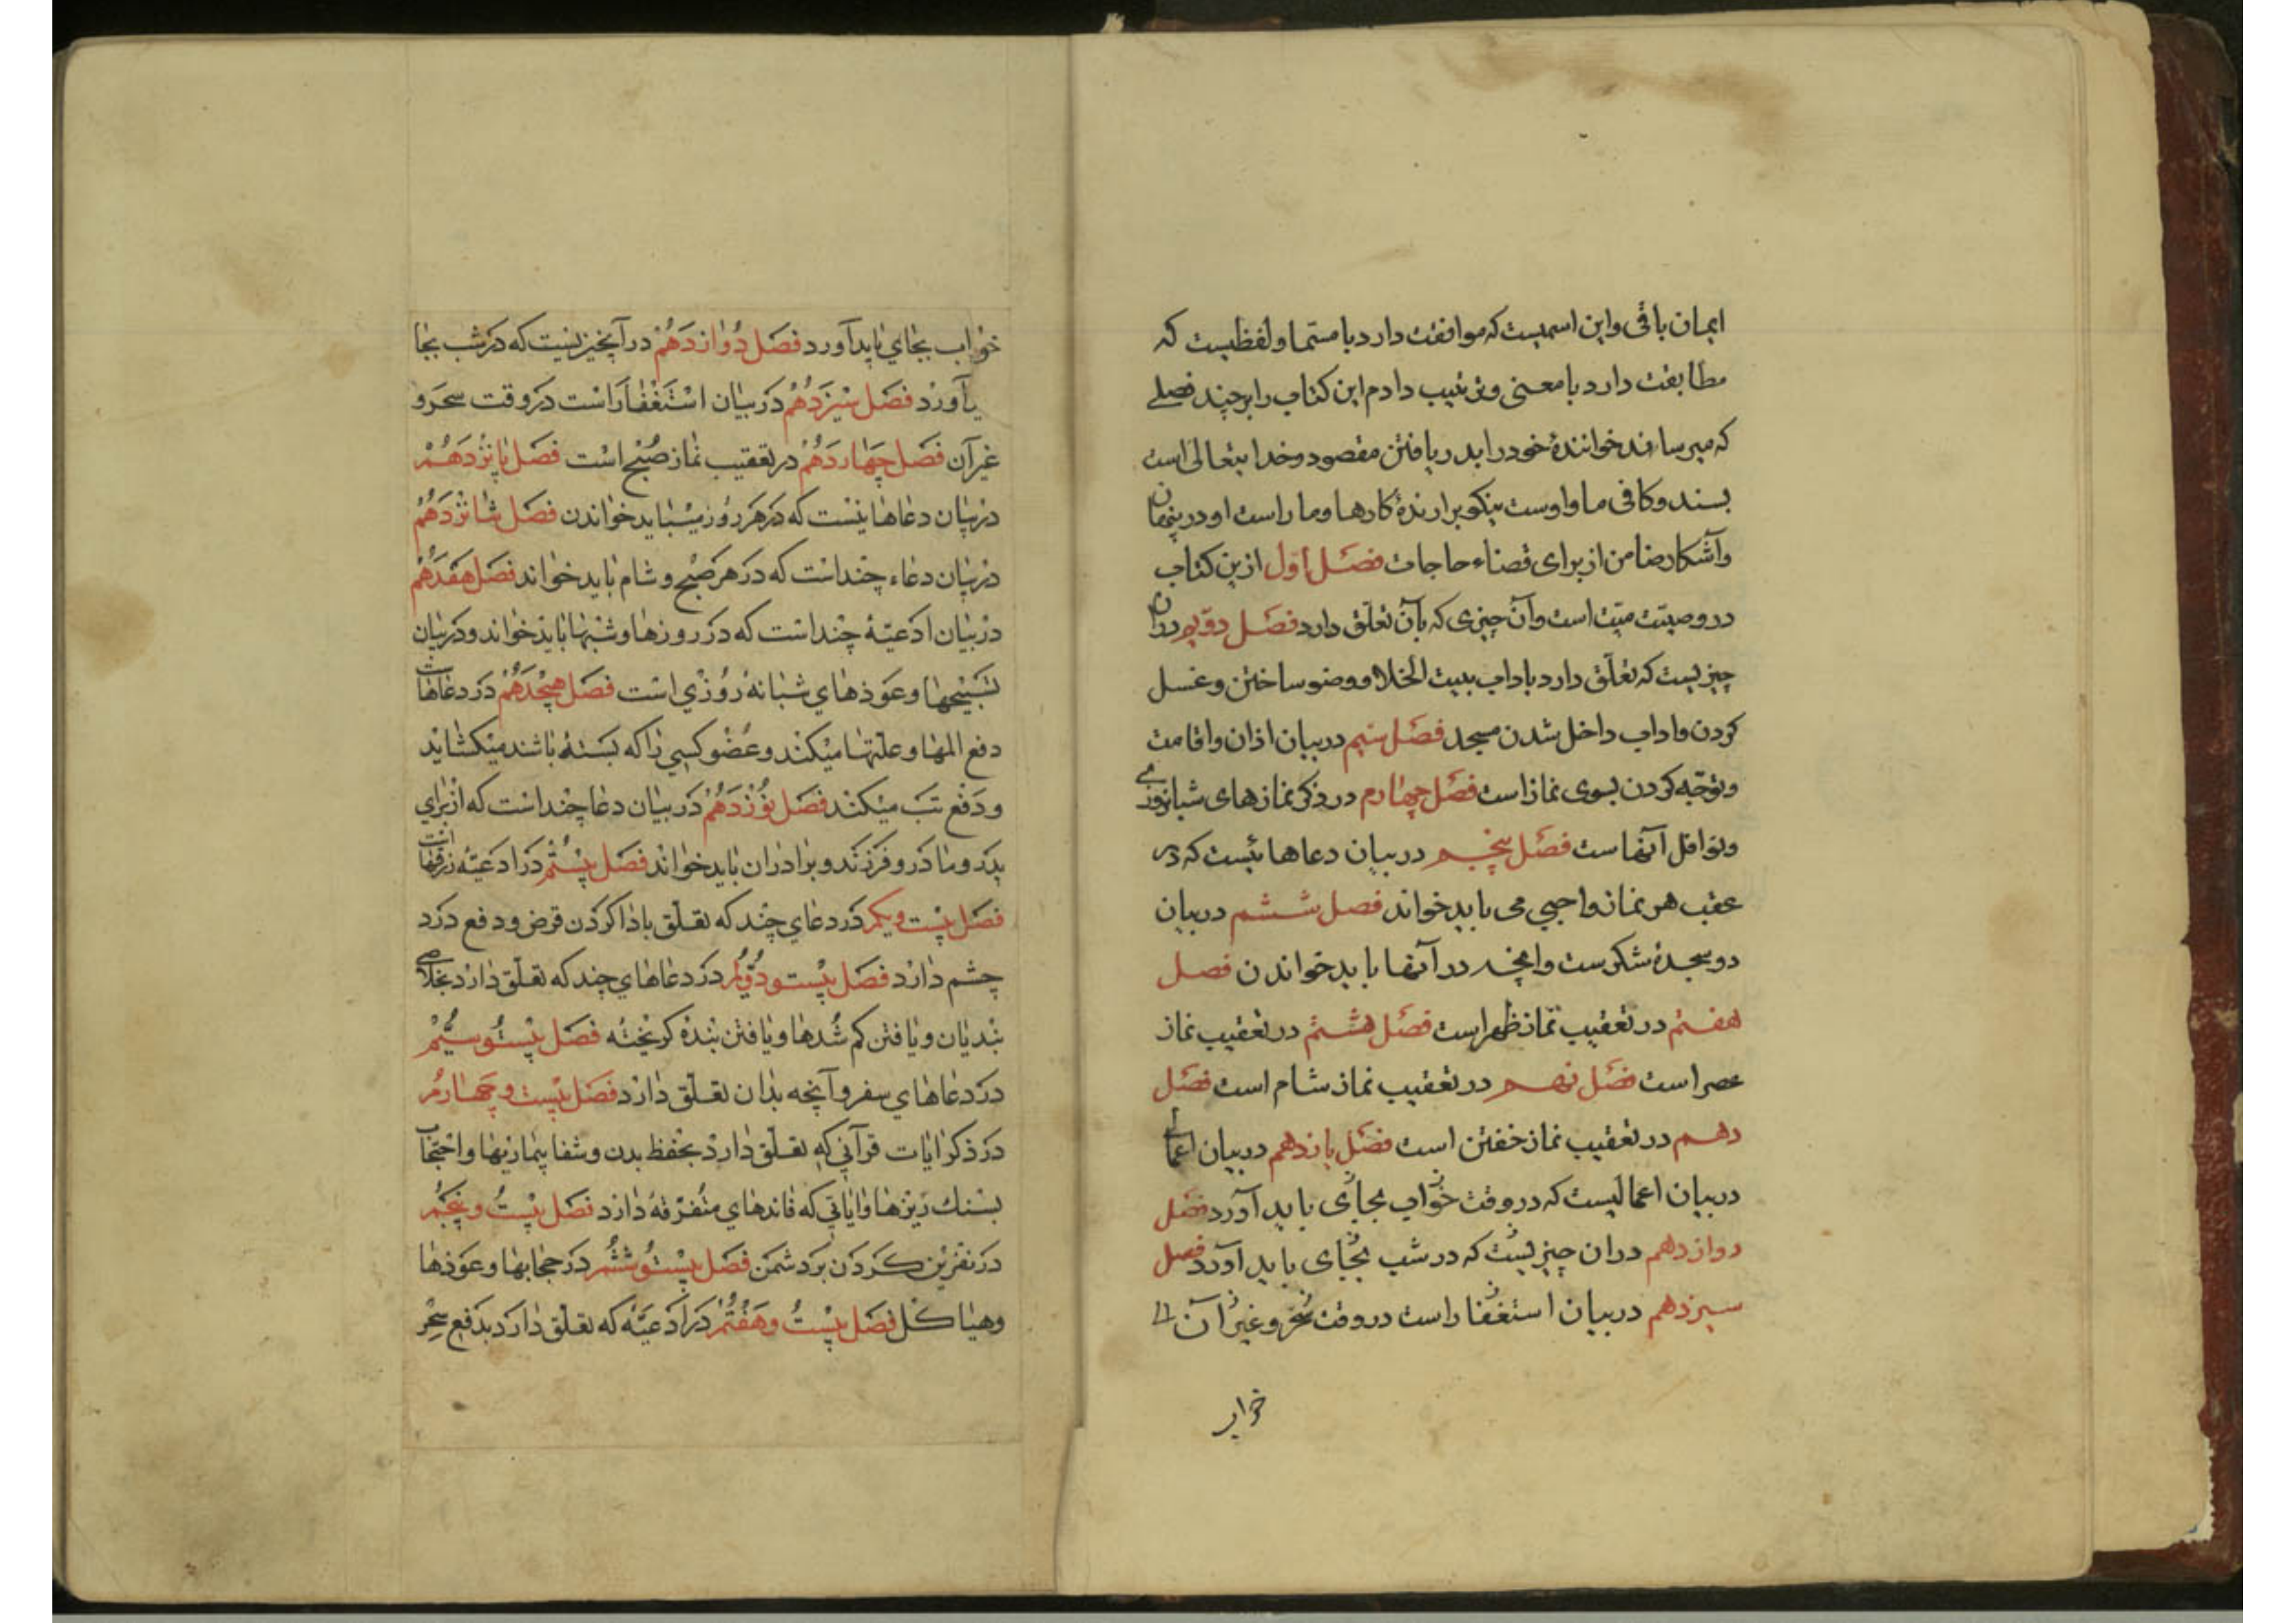 ایمان باقی و این اسمیست که موافقت دارد با مسمّا و لفظیست که
مطابقت دارد با معنی و ترتیب دادم این کتاب را بر چند فصلے
که میرساند خوانندهٔ خود را بدریافتن مقصود و خدایتعالی است
بسند و کافی ما و اوست نیکو برارندهٔ کارها و ما راست او در پنهان
و آشکار ضامن از برای قضاء حاجات فصل اوّل ازین کتاب
در وصیّت میّت است و آن چیزی که بآن تعلّق دارد فصل دوّیم در آن
چیزیست که تعلّق دارد باداب بیت الخلا و وضو ساختن و غسل
کردن و اداب داخل شدن مسجد فصل سیم در بیان اذان و اقامت
و توجّه کردن بسوی نماز است فصل چهارم در ذکر نمازهای شبانروزے
و نوافل آنهاست فصل پنجم در بیان دعاهائیست که در
عقب هر نماز واجبی می باید خواند فصل ششم در بیان
دو سجدهٔ شکرست و آنچه در آنها باید خواندن فصل
هفتم در تعقیب نماز ظهر است فصل هشتم در تعقیب نماز
عصر است فصل نهم در تعقیب نماز شام است فصل
دهم در تعقیب نماز خفتن است فصل یازدهم در بیان
در بیان اعمالیست که در وقت خواب بجای باید آورد فصل
دوازدهم در ان چیزیست که در شب بجای باید آورد فصل
سیزدهم در بیان استغفار است در وقت سحر و غیر آن
خواب
خواب بجاي بايد آورد فصل دوازدهم در آنچيزيست كه در شب بجا
يآورد فصل سيزدهم در بيان استغفار است در وقت سحر و
غير آن فصل چهاردهم در تعقيب نماز صبح است فصل پانزدهم
در بيان دعاهائيست كه در هر روز ميبايد خواندن فصل شانزدهم
در بيان دعاء چند است كه در هر صبح و شام بايد خواند فصل هفدهم
در بيان ادعيّهٔ چند است كه در روزها و شبها بايد خواند و در بيان
تسبيحها و عوذهاي شبانه روزي است فصل هيجدهم در دعاهاست
دفع المها و علّتها ميكند و عضو كسي را كه بسته باشند ميكشايد
و دفع تب ميكند فصل نوزدهم در بيان دعا چند است كه از براي
پدر و مادر و فرزند و برادران بايد خواند فصل بيستم در ادعيّه
فصل بيست و يكم در دعاي چند كه تعلّق بادا كردن قرض و دفع درد
چشم دارد فصل بيست و دوّيم در دعاهاي چند كه تعلّق دارد بخلاصے
بنديان و يافتن كم شدها و يافتن بندهٔ كريخته فصل بيست و سيّم
در دعاهاي سفر و آنچه بدان تعلّق دارد فصل بيست و چهارم
در ذكر ايات قرآني كه تعلّق دارد بحفظ بدن و شفا بيماريها و
بسنك ريزها و اياتي كه فائدهاي متفرّقه دارد فصل بيست و پنجم
در نفرين كردن بر دشمن فصل بيست و ششم در حجابها و عوذها
و هياكل فصل بيست و هفتم در ادعيّه كه تعلّق دارد بدفع سحر